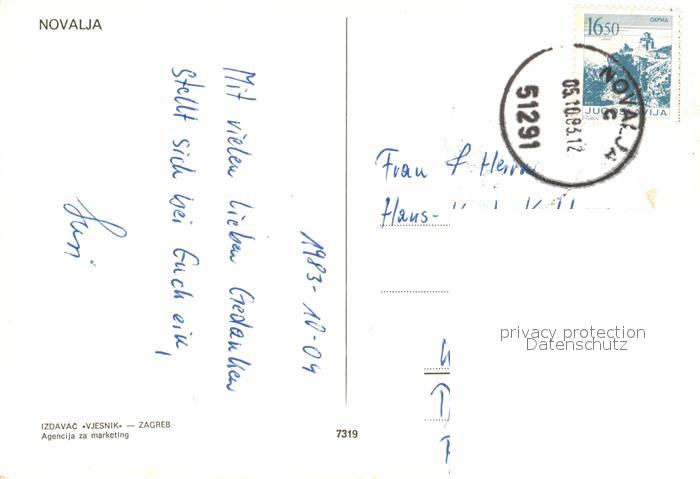 NOVALJA
1983-10-04
Mit vielen lieben Gedanken
stellt sich bei Euch ein,
IZDAVAČ «VJESNIK» — ZAGREB
Agencija za marketing
7319
1650
ОХРИД
JUGOSLAVIJA
NOVALJA
05.10.83.12
51291
Frau & Herrn
Hans-
privacy protection
Datenschutz